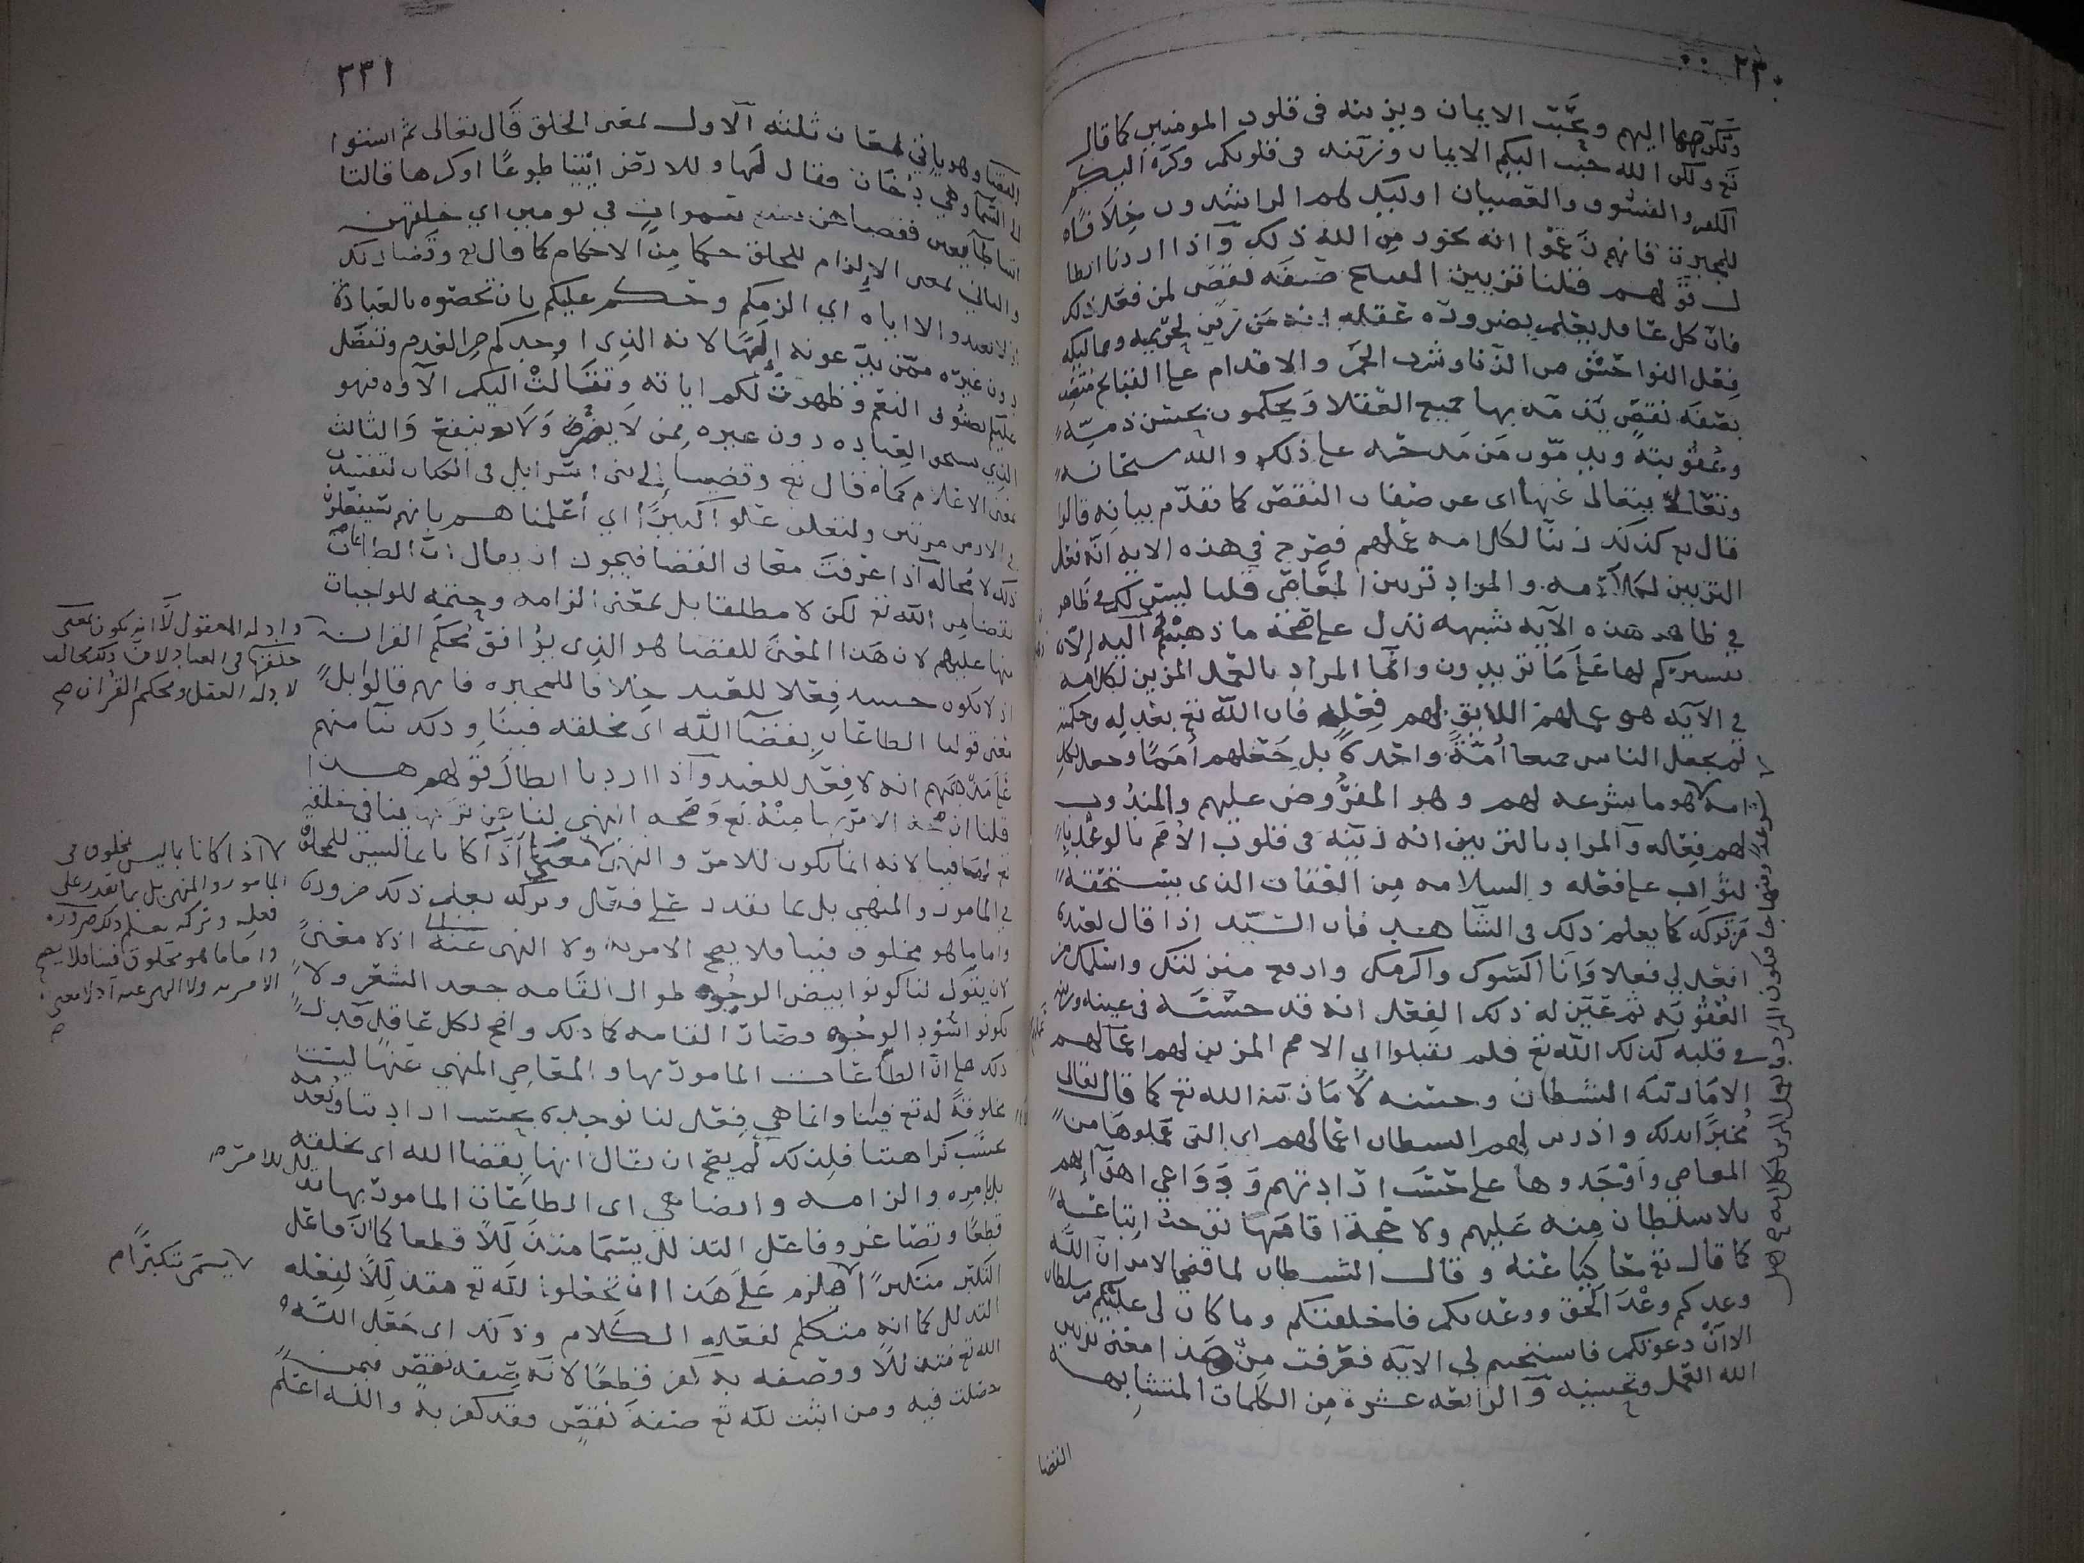 ٢٣٠
وتكرهها اليهم وحبب الايمان ويزينه في قلوب المومنين كما قال
تع ولكن الله حبب اليكم الايمان وزينه في قلوبكم وكره اليكم
الكفر والفسوق والعصيان اوليك هم الراشدون خلافا
للمجبرة فانهم زعموا انه يجوز من الله ذلك واذا اردنا ابطا
ل قولهم قلنا تزيين القبايح صفة نقص لمن فعل ذلك
فان كل عاقل يعلم بضرورة عقله انه من زين لحريمه ومماليكه
فعل الفواحش من الزنا وشرب الخمر والاقدام على القبايح متصف
بصفة نقص يذمه بها جميع العقلا ويحكمون بحسن ذمه
وعقوبته ويذمون من مدحه على ذلك والله سبحانه
وتعالى يتعالى عنها اي عن صفات النقص كما تقدم بيانه قالوا
قال تع كذلك زينا لكل امه عملهم فصرح في هذه الايه انه فعل
التزيين لكل امه والمراد تزيين المعاصي قلنا ليس لكم في ظاهر
في ظاهر هذه الآيه شبهه تدل على صحة ما ذهبتم اليه الا ان
تفسيركم لها على ما تريدون وانما المراد بالعمل المزين لكل امه
في الآيه هو عملهم اللايق بهم فعله فان الله تع بعدله وحكمته
لم يجعل الناس جميعا امة واحدة بل جعلهم امما وجعل لكل
امه هو ما شرعه لهم وهو المفروض عليهم والمندوب
لهم فعله والمراد بالتزيين انه زينه في قلوب الأمم بالوعد با
لثواب على فعله والسلامه من العقاب الذي يستحقه
من تركه كما يعلم ذلك في الشاهد فان السيد اذا قال لعبده
افعل لي فعلا وانا اكسوك واكرمك وارفع منزلتك واسلمك من
العقوبه ثم عين له ذلك الفعل انه قد حسنه في عينه وزينه
في قلبه كذلك الله تع فلم يقبلوا اي الامم المزين لهم اعمالهم
الا ما زينه الشيطان وحسنه لا ما زينه الله تع كما قال تعالى
مخبرا بذلك واذ زين لهم الشيطان اعمالهم اي التي عملوها من
المعاصي واوجدوها على حسب ارادتهم ودواعي اهوآ إهم
بلا سلطان منه عليهم ولا حجة اقامها توجب اتباعه
كما قال تع حاكيا عنه وقال الشيطان لما قضي الامر ان الله
وعدكم وعد الحق ووعدتكم فاخلفتكم وما كان لي عليكم من سلطان
الا ان دعوتكم فاستجبتم لي الآيه فعرفت من هذا معنى تزيين
الله العمل وتحسينه والرابعه عشرة من الكلمات المتشابهه
القضا
٢٣١
القضا وهو ياتي لمعان ثلثه آلاول بمعنى الخلق قال تعالى ثم استوا
الى السماء وهي دخان فقال لها وللارض ائتيا طوعا او كرها قالتا
اتينا طآيعين فقضاهن سبع سموات في يومين اي خلقهن
والثاني بمعنى الإلزام للخلق حكما من الاحكام كما قال تع وقضا ربك
ان لا تعبدوا الا اياه اي الزمكم وحكم عليكم بان تخصوه بالعبادة
دون غيره ممن يدعونه إلها لانه الذي اوجدكم من العدم وتفضل
عليكم بصنوف النعم وظهرت لكم اياته وتتالت اليكم الآوه فهو
الذي يستحق العباده دون غيره ممن لا يضر ولا ينفع والثالث
بمعنى الاعلام كما قال تع وقضينا إلى بني اسرآيل في الكتاب لتفسدن
في الارض مرتين ولتعلن علوا كبيرا اي أعلمناهم بانهم سيفعلون
ذلك لا محاله اذا عرفت معاني القضا فيجوز ان يقال ان الطاعات
بقضا من الله تع لكن لا مطلقا بل بمعنى الزامه وحتمه للواجبات
منها عليهم لان هذا المعنى للقضا هو الذي يوافق محكم القران
اذ لا يكون حينيذ فعلا للعبد خلافا للمجبره فانهم قالوا بل
معنى قولنا الطاعات بقضآ الله اي بخلقه فينا وذلك بنا منهم
على مذهبهم انه لا فعل للعبد واذا اردنا ابطال قولهم هذا
قلنا ان صحة الامر بها منه تع وصحه النهي لنا عن تركها ينافي خلقه
تع لها فينا لانه انما يكون للامر والنهي معنى اذا كانا بما ليس بمخلوق
في المامور والمنهي بل بما يقدر على فعله وتركه يعلم ذلك ضرورة
واما ما هو مخلوق فينا فلا يصح الامر به ولا النهي عنه اذ لا معنى
لان يقول لنا كونوا بيض الوجوه طوال القامه جعد الشعر ولا
تكونوا اسود الوجوه وقصار القامه كما ذلك واضح لكل عاقل فدل
ذلك على ان الطاعات المامور بها والمعاصي المنهي عنها ليست
مخلوقة له تع فينا وانما هي فعل لنا نوجده بحسب ارادتنا ونعدمه
بحسب كراهتنا فلذلك لم يصح ان يقال انها بقضا الله اي بخلقه
بل بامره والزامه وايضا هي اي الطاعات المامور بها تذلل
قطعا وتصاغر وفاعل التذلل يسما متذللا قطعا كما ان فاعل
التكبر متكبرا فلزم على هذا ان تجعلوا الله تع متذللا لفعله
التذلل كما انه متكلم لفعله الكلام وذلك اي جعل الله
الله تع متذللا ووصفه به كفر قطعا لانه صفه نقص فيمن
حصلت فيه ومن اثبت لله تع صفة نقص فقد كفر به والله اعلم
وادله المعقول لا انه يكون بمعنى
خلقها في العباد لان ذلك مخالف
لادله العقل ومحكم القران صح
اذا كانا بما ليس بمخلوق في
المامور والمنهي بل بما يقدر على
فعله وتركه يعلم ذلك ضرورة
واما ما هو مخلوق فينا فلا يصح
الامر به ولا النهي عنه اذ لا معنى
يسمى متكبرا